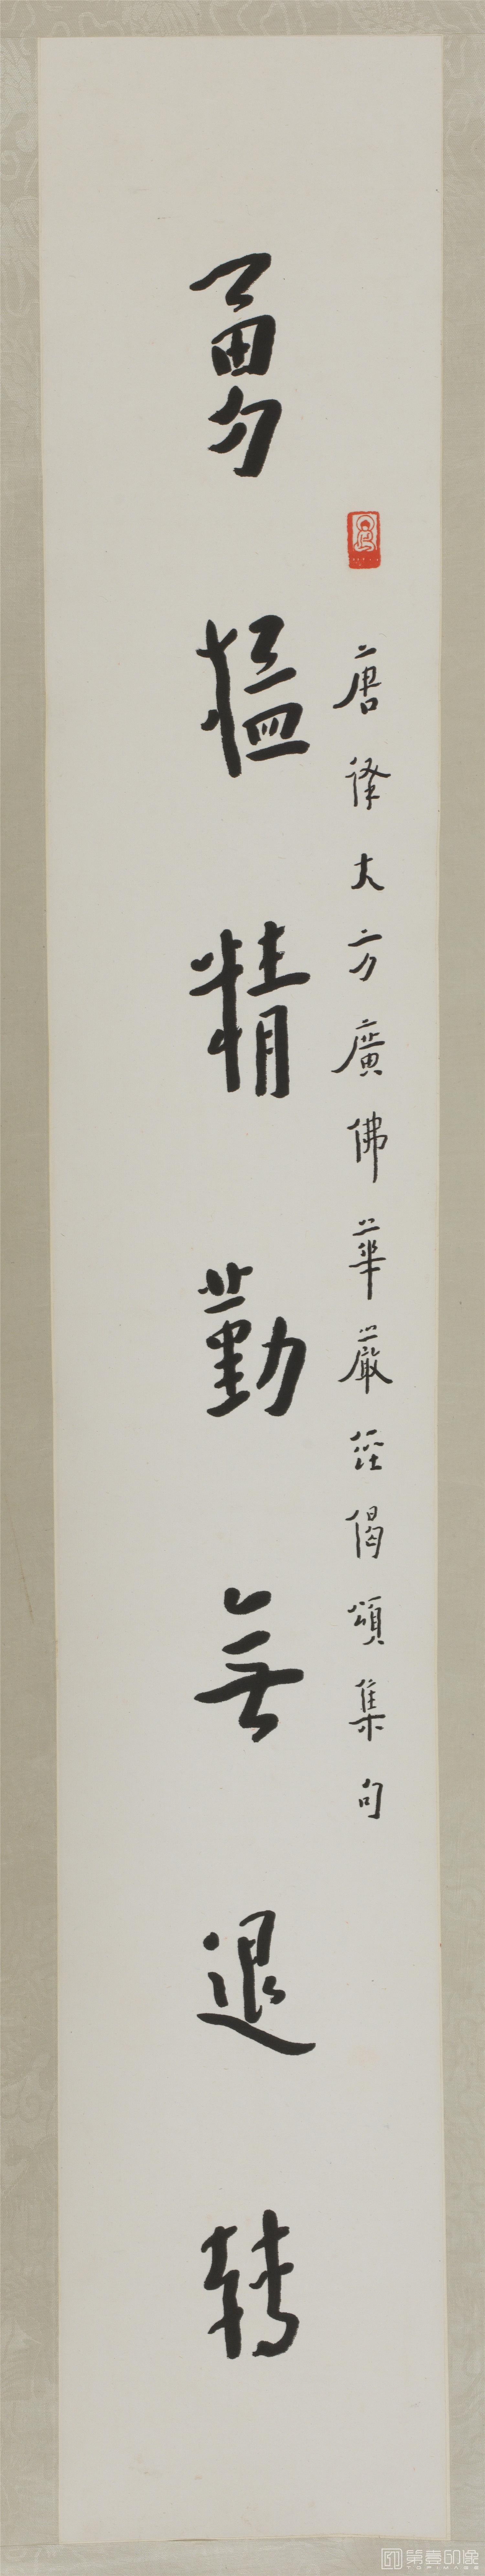 唐譯大方廣佛華嚴經偈頌集句
勇猛精勤無退轉
第壹印像
TOPIMAGE